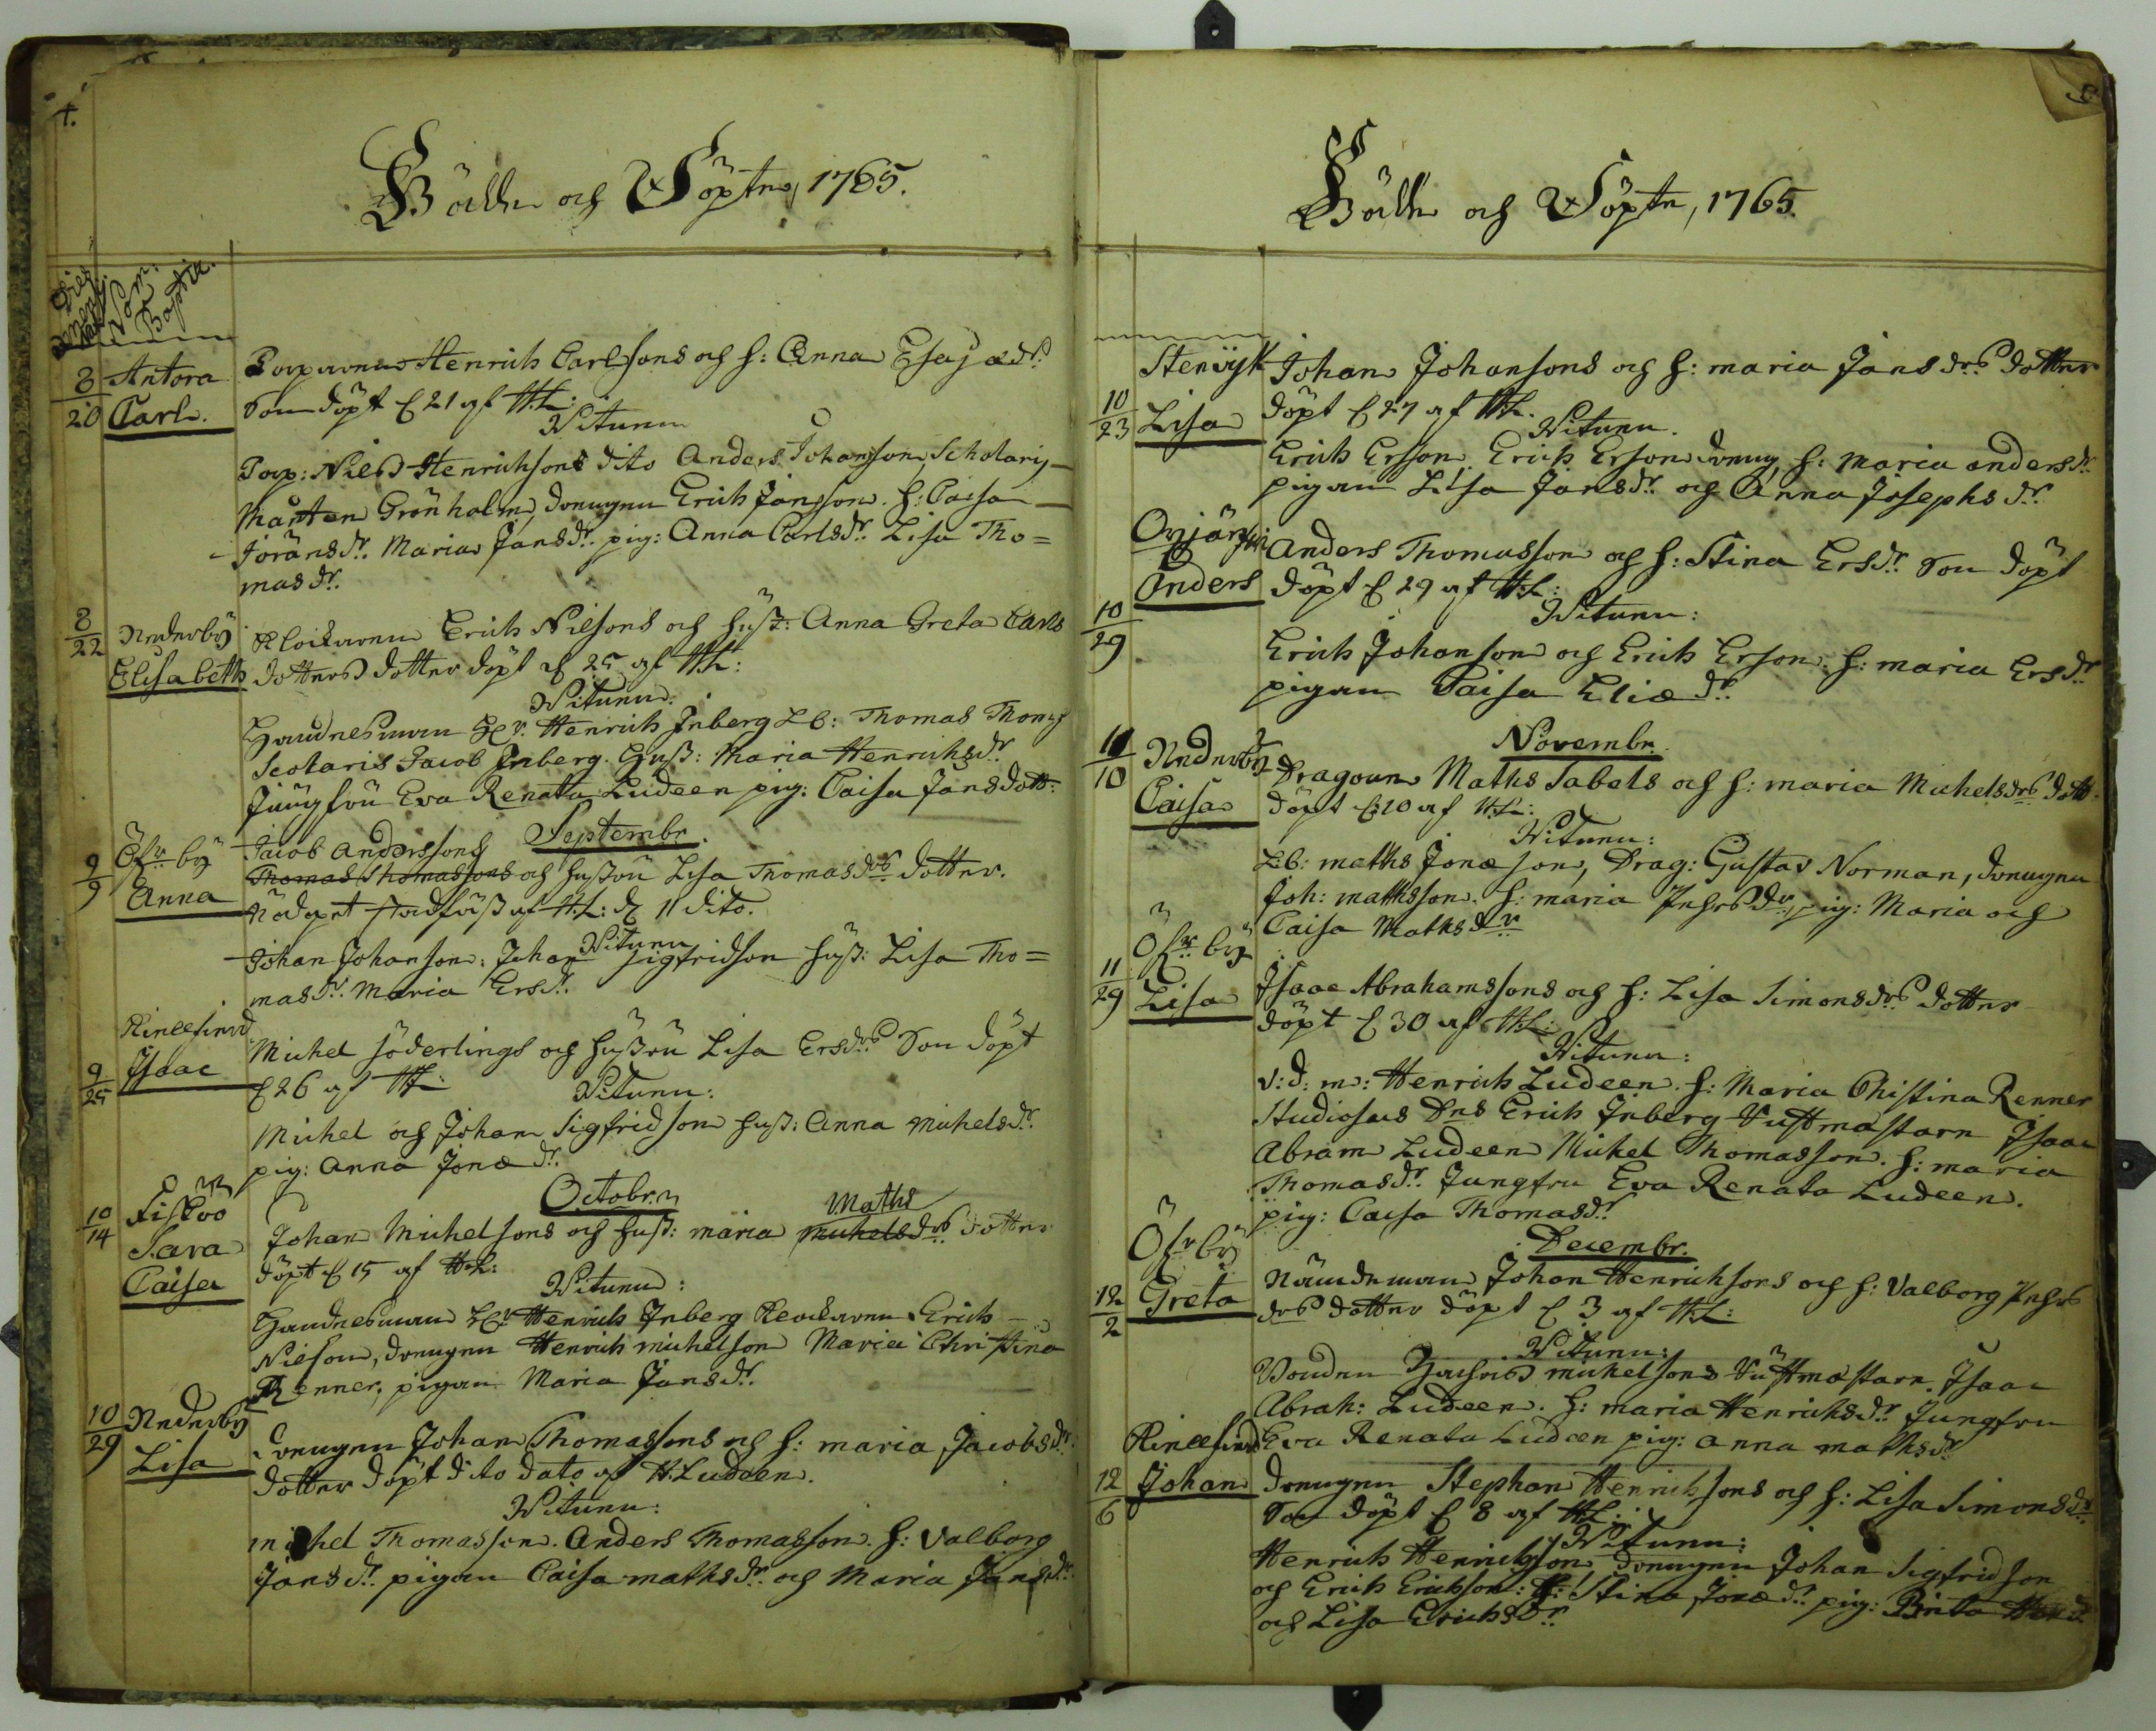 4.
Födde och Döpte, 1765.
Nom:
Baptiz.
8
20
Antora
Carl.
Torparens Henrich Carlsons och h: Anna Esajædr
Son döpt d 21 af H:L:
Witnen
Torp: Nils Henrichsons dito Anders Johansson, Scholaris
Mårten Grönholm, drengen Erich Jansson. h: Caisa
Joransdr. Maria Jansdr. pig: Anna Carlsdr. Lisa Tho=
masdr.
8
22
Nederby
Elisabeth
Klockaren Erich Nilsons och hust: Anna Greta Carls
dotters dotter döpt d 25 af H:L:
Witnen:
Henrich Inberg Lb: Thomas Thoms
Scolaris Jacob Inberg. Hust: Maria Henrichsdr
Jungfru Eva Renata Ludeen pig: Caisa Jansdott:
Septembr.
9
9
Öfrby
Anna
Jacob Anderssons
Thomas Thomassons och hustru Lisa Thomasdrs dotter.
nödopt stadfäst af H:L: d 11 dito.
Witnen
Johan Johanson. Johan Sigfridson hust: Lisa Tho=
masdr. Maria Ersdr.
9
25
Isaac
Michel Söderlings och hustru Lisa Ersdrs Son döpt
d 26 af HL:
Witnen:
Michel och Johan Sigfridson hust: Anna Michelsdr.
pig: Anna Jonædr.
Octobr.
10
14
Fiskö
Sara
Caisa
Johan Michelsons och hust: maria Michelsdrs Maths dotter
döpt d 15 af H:L:
Witnen:
Henrich Inberg Klockaren Erich
Nilson, drengen Henrich michelson Maria Christina
Renner, pigan Maria Jansdr.
10
29
Nederby
Lisa
Drengen Johan Thomassons och h: maria Jacobsdr.
dotter döpt dito dato af H. Ludeen.
Witnen:
michel Thomasson. Anders Thomasson. h: Valborg
Jansdr. pigan Caisa mathsdr. och Maria Jansdr.
Födde och Döpte, 1765.
10
23
Lisa
Johan Johansons och h: maria Jansdrs dotter
döpt d 27 af H:L.
Witnen.
Erich Erson. Erich Erson dreng, h: Maria andersdr.
pigan Lisa Jansdr. och Anna Josephsdr.
10
29
Anders
Anders Thomasson och h: Stina Ersdr. Son döpt
döpt d 29 af H:L:
Witnen:
Erich Johanson och Erich Erson. h: maria Ersdr.
pigan Caisa Eliædr.
Novembr.
11
10
Nederby
Caisa
Dragoun Maths Sabels och h: maria Michelsdrs dott.
döpt d 10 af H:L:
Witnen:
Lb: maths Jonæson, Drag: Gustav Norman, drengen
Joh: mathsson. h: maria Pehrsdr, pig: Maria och
Caisa Mathsdr
11
29
Öfrby
Lisa
Isaac Abrahamssons och h: Lisa Simonsdrs dotter
döpt d 30 af H:L:
Witnen:
V: D: m: Henrich Ludeen. h: Maria Christina Renner
Studiosus Dns Erich Inberg Isaac
Abram Ludeen Michel Thomasson. h: maria
Thomasdr. Jungfru Eva Renata Ludeen.
pig: Caisa Thomasdr.
Decembr.
12
2
Öfrby
Greta
Nämdeman Johan Henrichsons och h: Valborg Pehrs
drs dotter döpt d 3 af H:L:
Witnen:
michelsons Isaac
Abrah: Ludeen. h: maria Henrichsdr Jungfru
Eva Renata Ludeen pig: anna mathsdr.
12
6
Johan
drengen Stephan Henrichsons och h: Lisa Simonsdr.
Son döpt d 8 af H:L:
Witnen:
Henrich Henrichsson drengen Johan Sigfridson
och Erich Erichson: h: Stina Jonædr. pig: Brita
och Lisa Erichsdr.